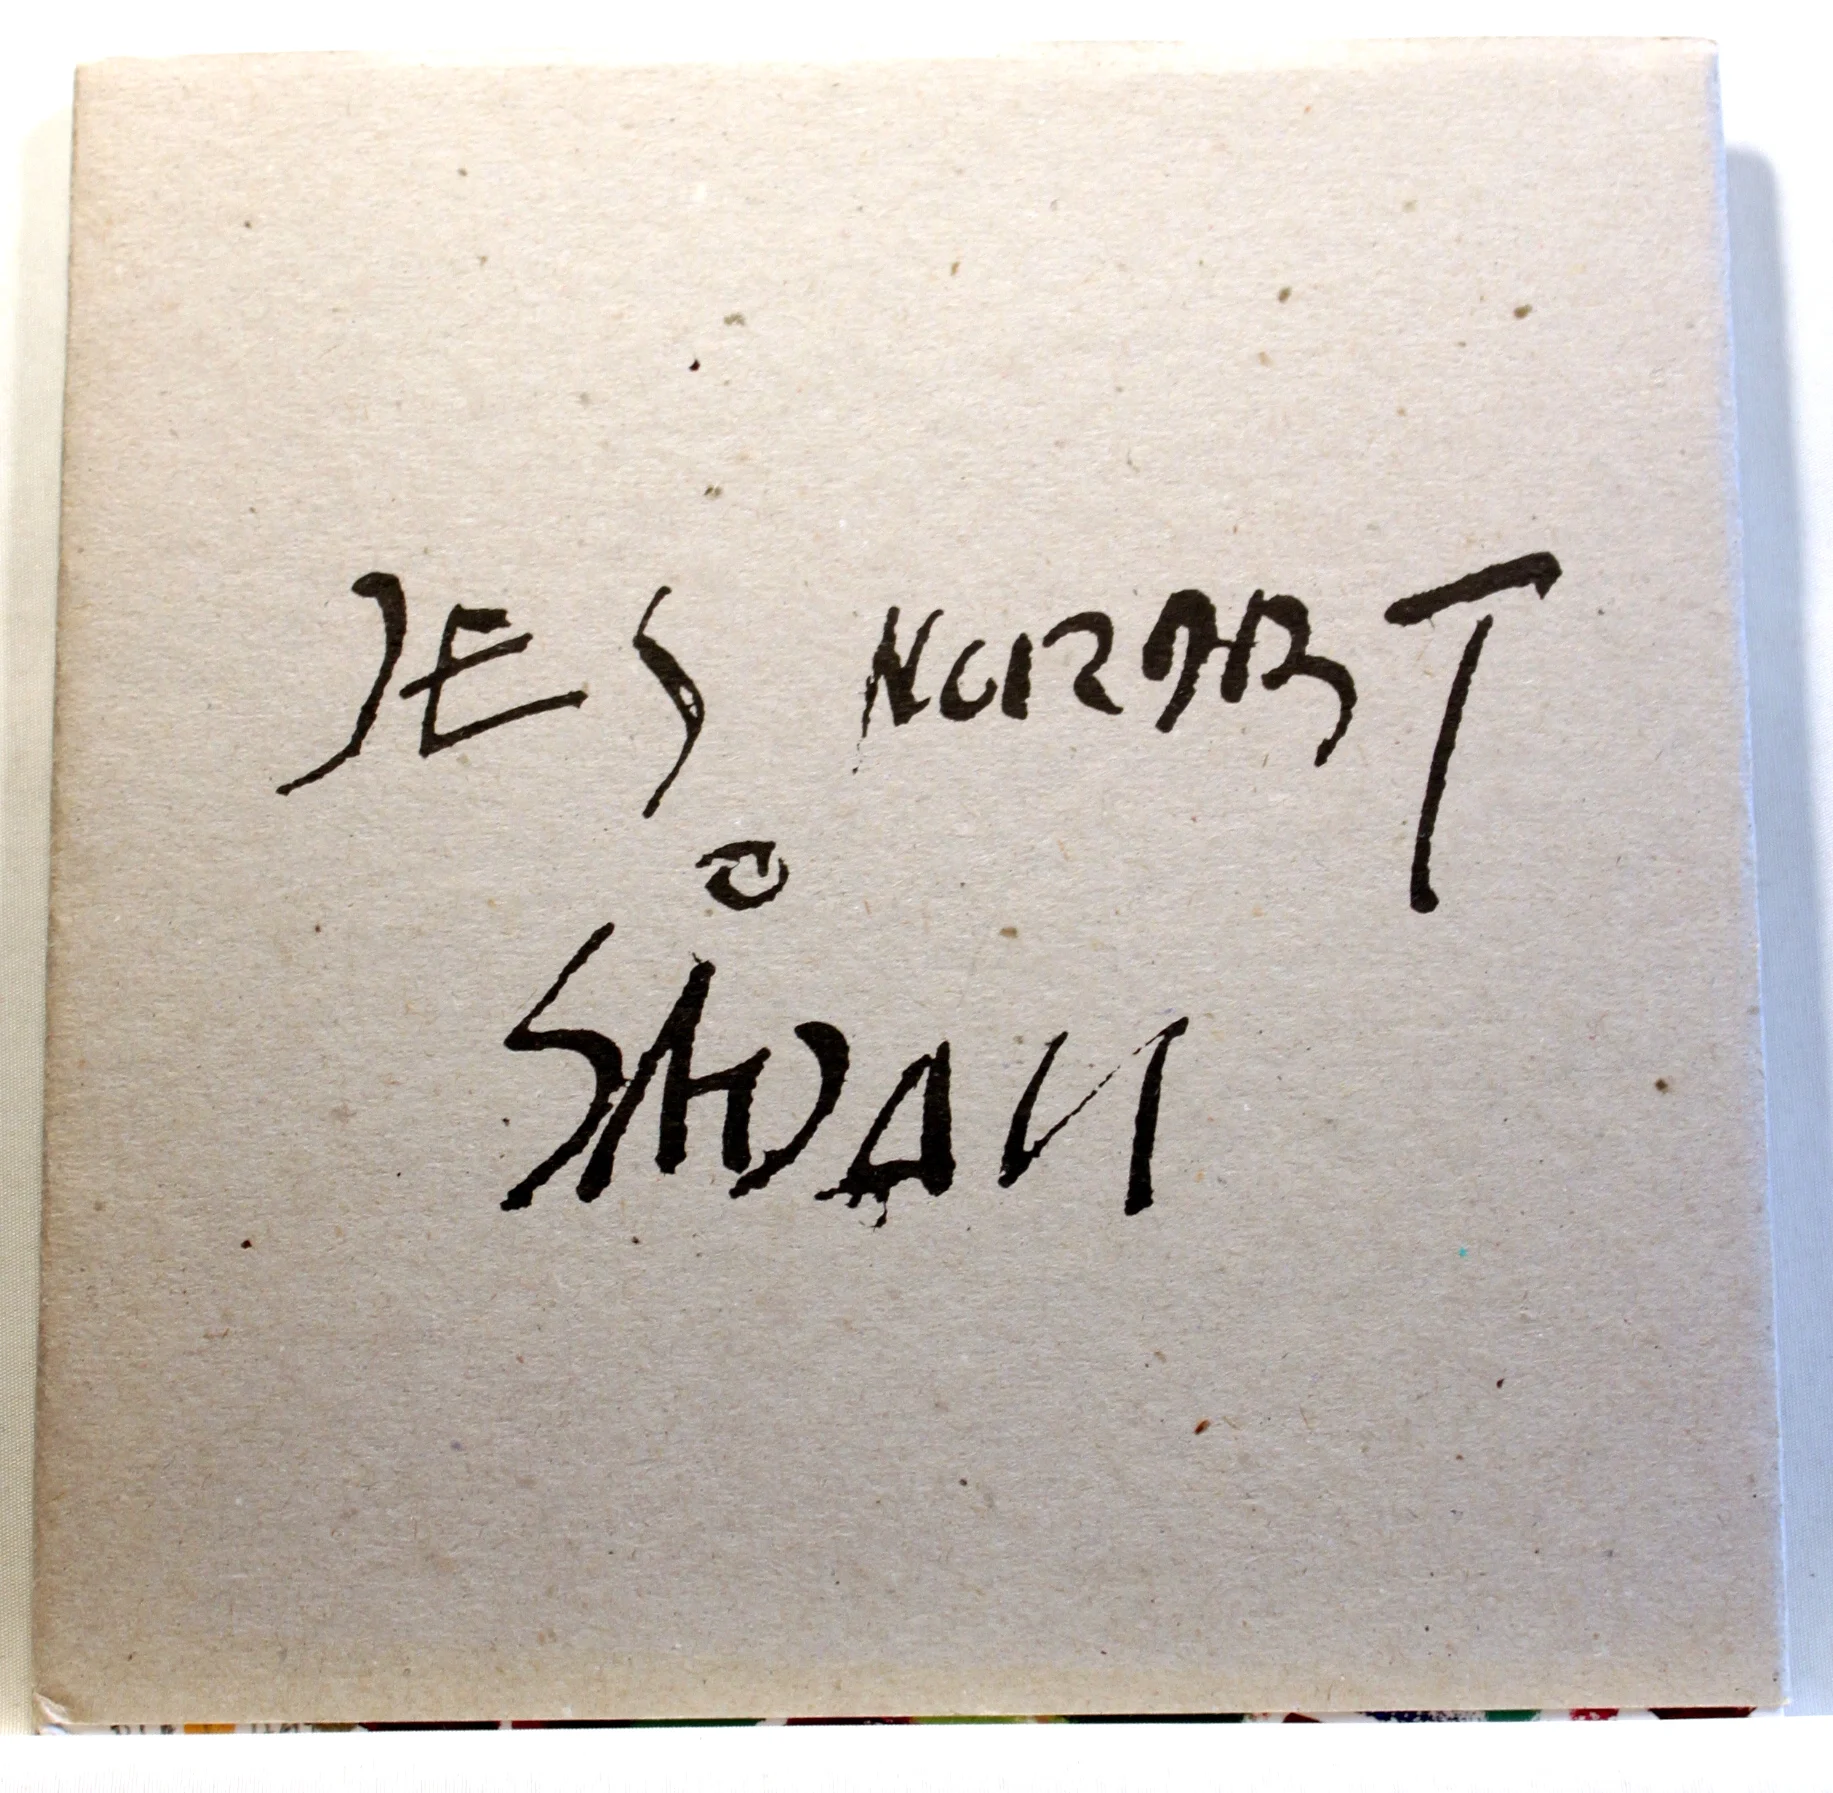 JES NORART
SÅDAN